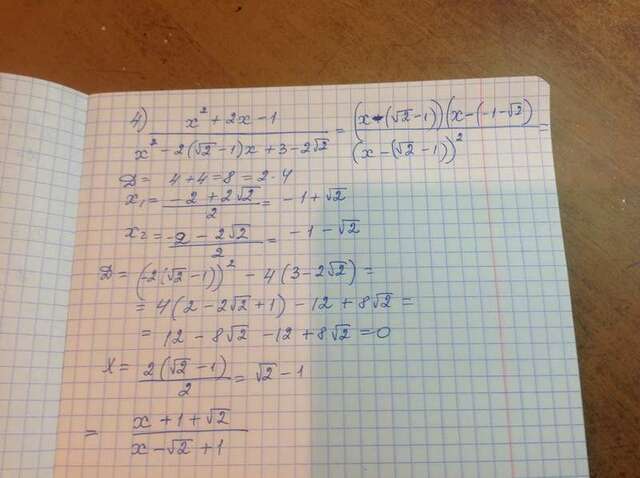 4) (x² + 2x - 1)/(x² - 2(√2 - 1)x + 3 - 2√2) = ((x - (√2 - 1))(x - (-1 - √2))/(x - (√2 - 1))² =
D = 4 + 4 = 8 = 2 · 4
x₁ = (-2 + 2√2)/2 = -1 + √2
x₂ = (-2 - 2√2)/2 = -1 - √2
D = (-2(√2 - 1))² - 4(3 - 2√2) =
= 4(2 - 2√2 + 1) - 12 + 8√2 =
= 12 - 8√2 - 12 + 8√2 = 0
X = 2(√2 - 1)/2 = √2 - 1
= (x + 1 + √2)/(x - √2 + 1)